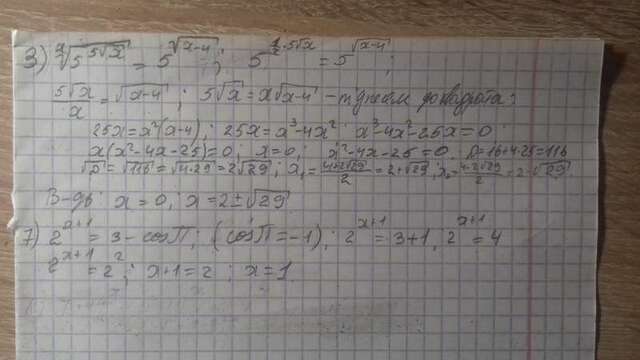 3) ˣ√(5^(5√x)) = 5^(√(x-4)); 5^((1/x)·5√x) = 5^(√(x-4));
5√x/x = √(x-4); 5√x = x√(x-4) -
25x = x²(x-4); 25x = x³-4x²; x³-4x²-25x=0
x(x²-4x-25)=0; x=0; x²-4x-25=0; D=16+4·25=116
√D = √116 = √4·29 = 2√29; x₁ = (4+2√29)/2 = 2+√29; x₂ = (4-2√29)/2 = 2-√29
В-дь: x=0; x=2±√29
7) 2^(x+1) = 3 - cosπ; (cosπ=-1); 2^(x+1) = 3+1; 2^(x+1) = 4
2^(x+1) = 2²; x+1=2; x=1